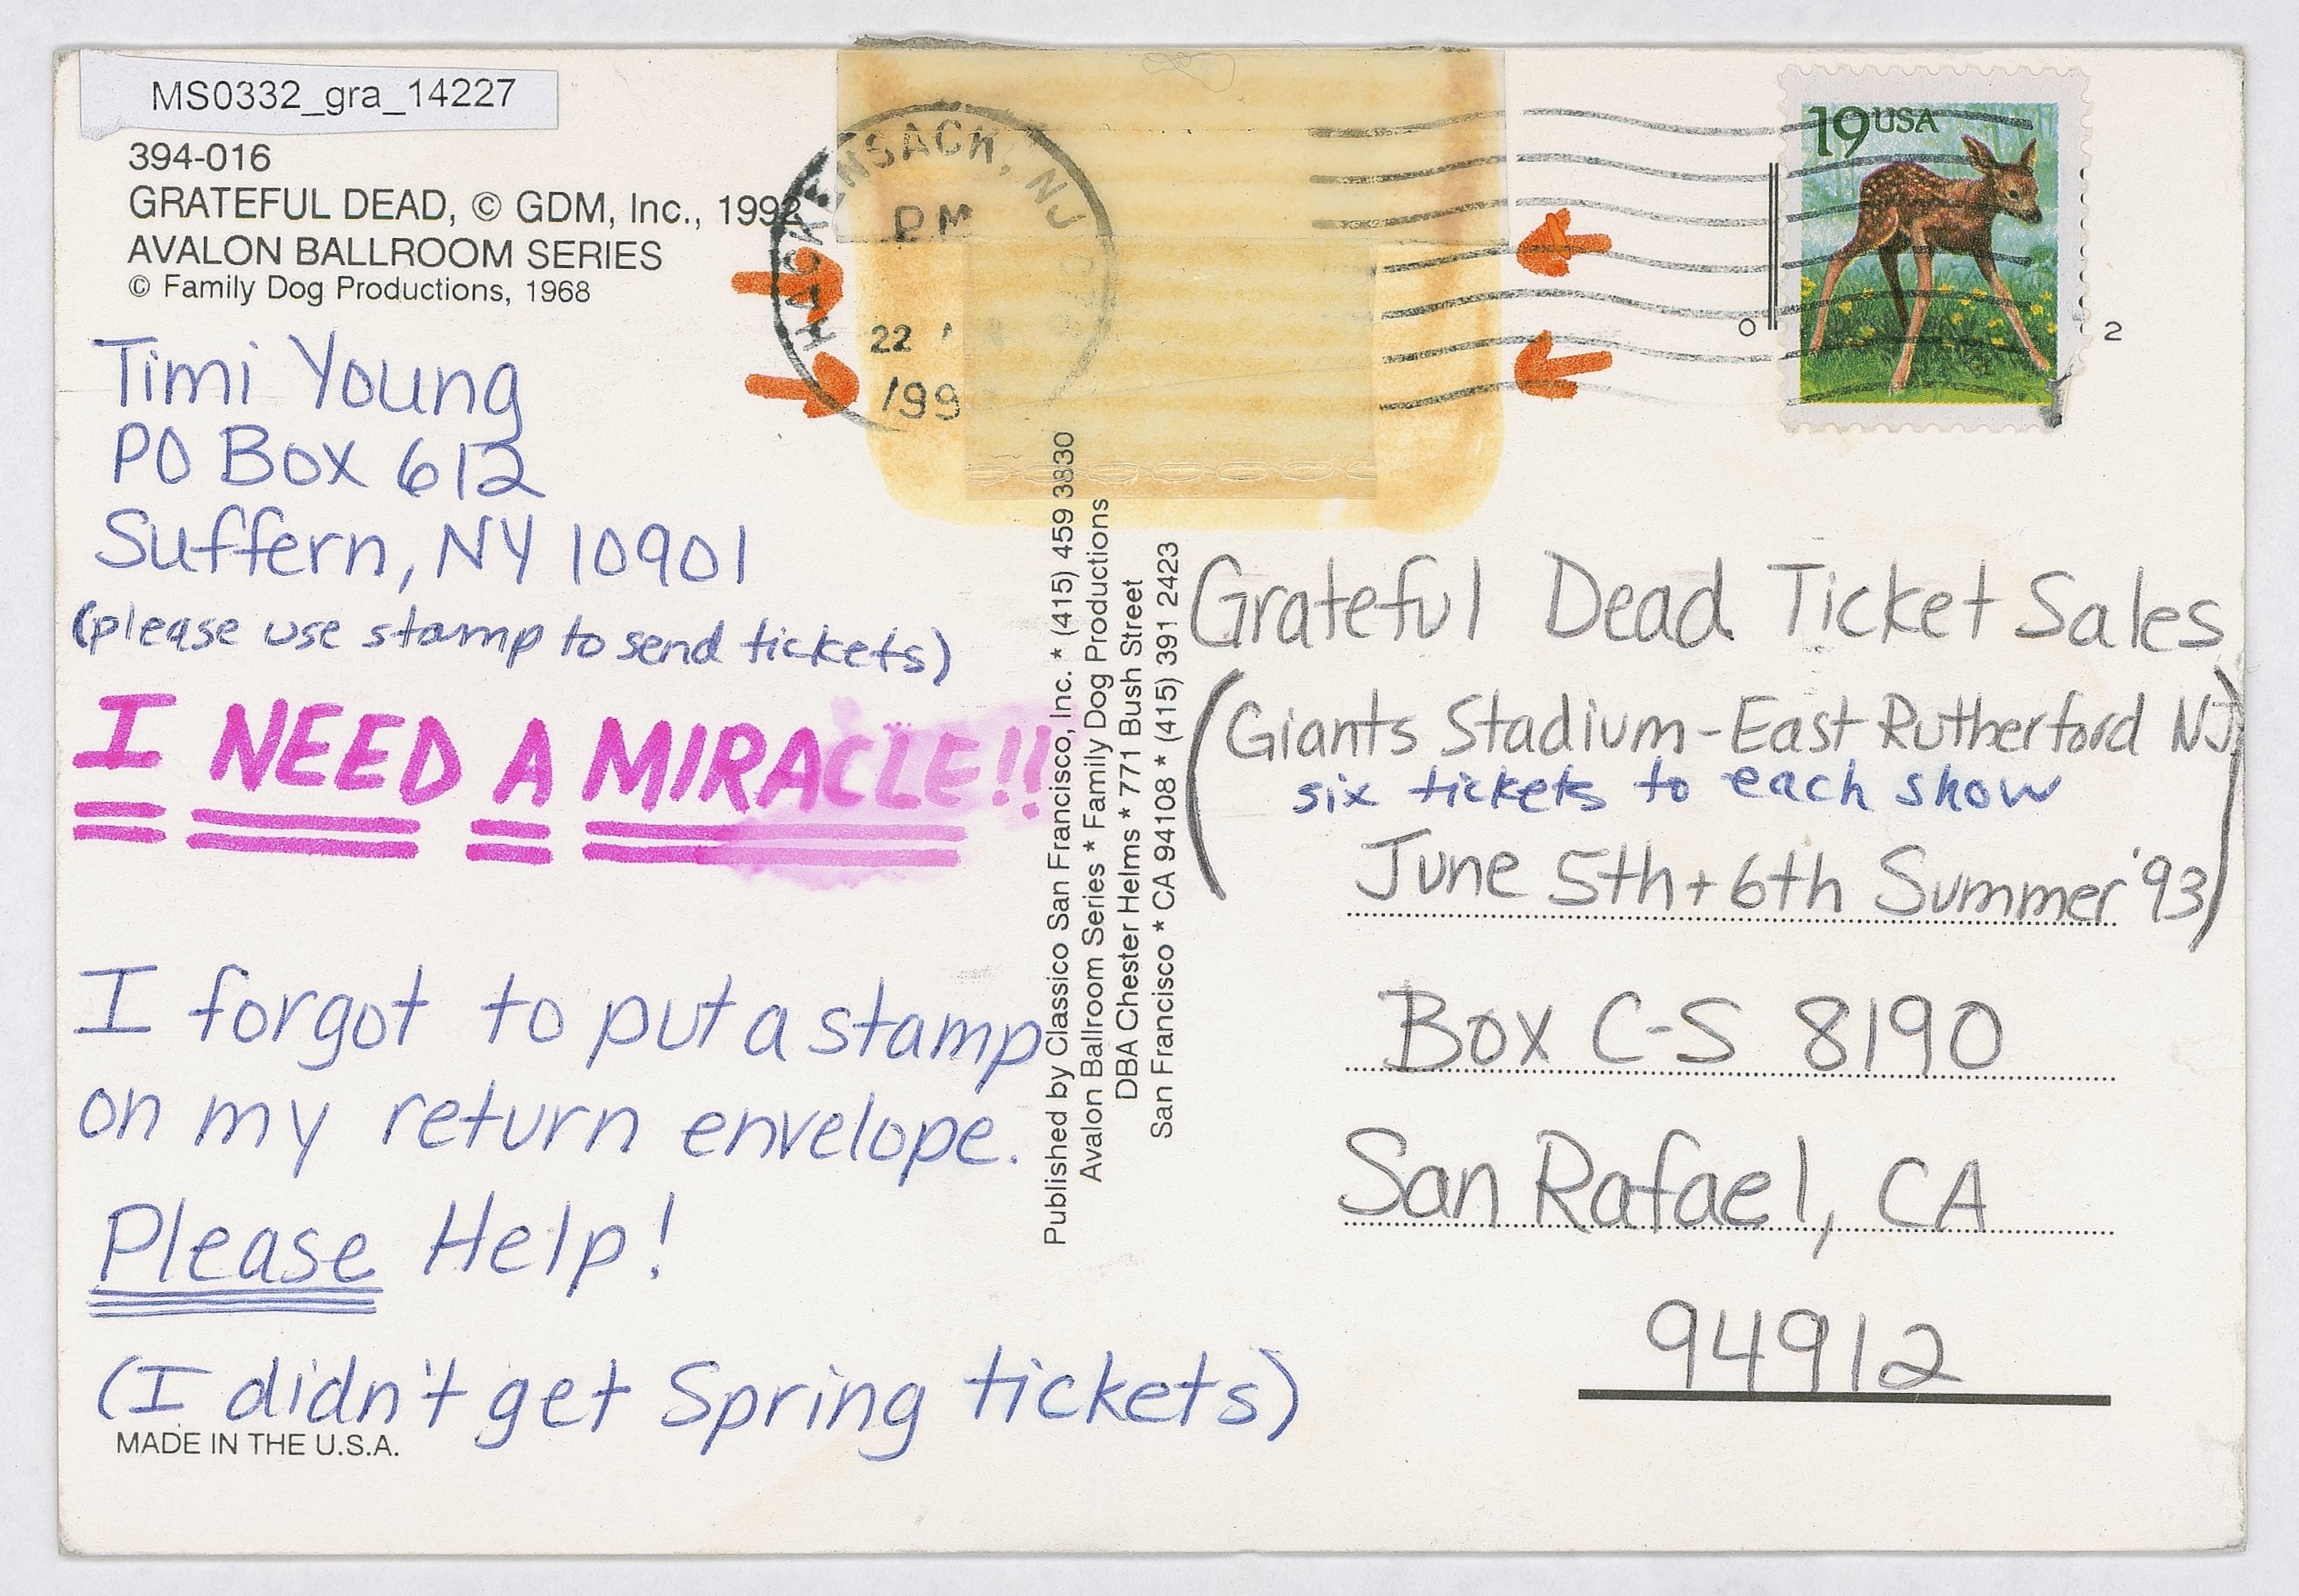 MS0332_gra_14227
394-016
GRATEFUL DEAD, © GDM, Inc., 1992
AVALON BALLROOM SERIES
© Family Dog Productions, 1968
HACKENSACK, NJ
PM
22
199
19 USA
2
Timi Young
PO Box 612
Suffern, NY 10901
(please use stamp to send tickets)
I NEED A MIRACLE!!
I forgot to put a stamp
on my return envelope.
Please Help!
(I didn't get Spring tickets)
MADE IN THE U.S.A.
Published by Classico San Francisco, Inc. * (415) 459 3830
Avalon Ballroom Series * Family Dog Productions
DBA Chester Helms * 771 Bush Street
San Francisco * CA 94108 * (415) 391 2423
Grateful Dead Ticket Sales
(Giants Stadium-East Rutherford NJ
six tickets to each show
June 5th + 6th Summer '93)
Box C-S 8190
San Rafael, CA
94912